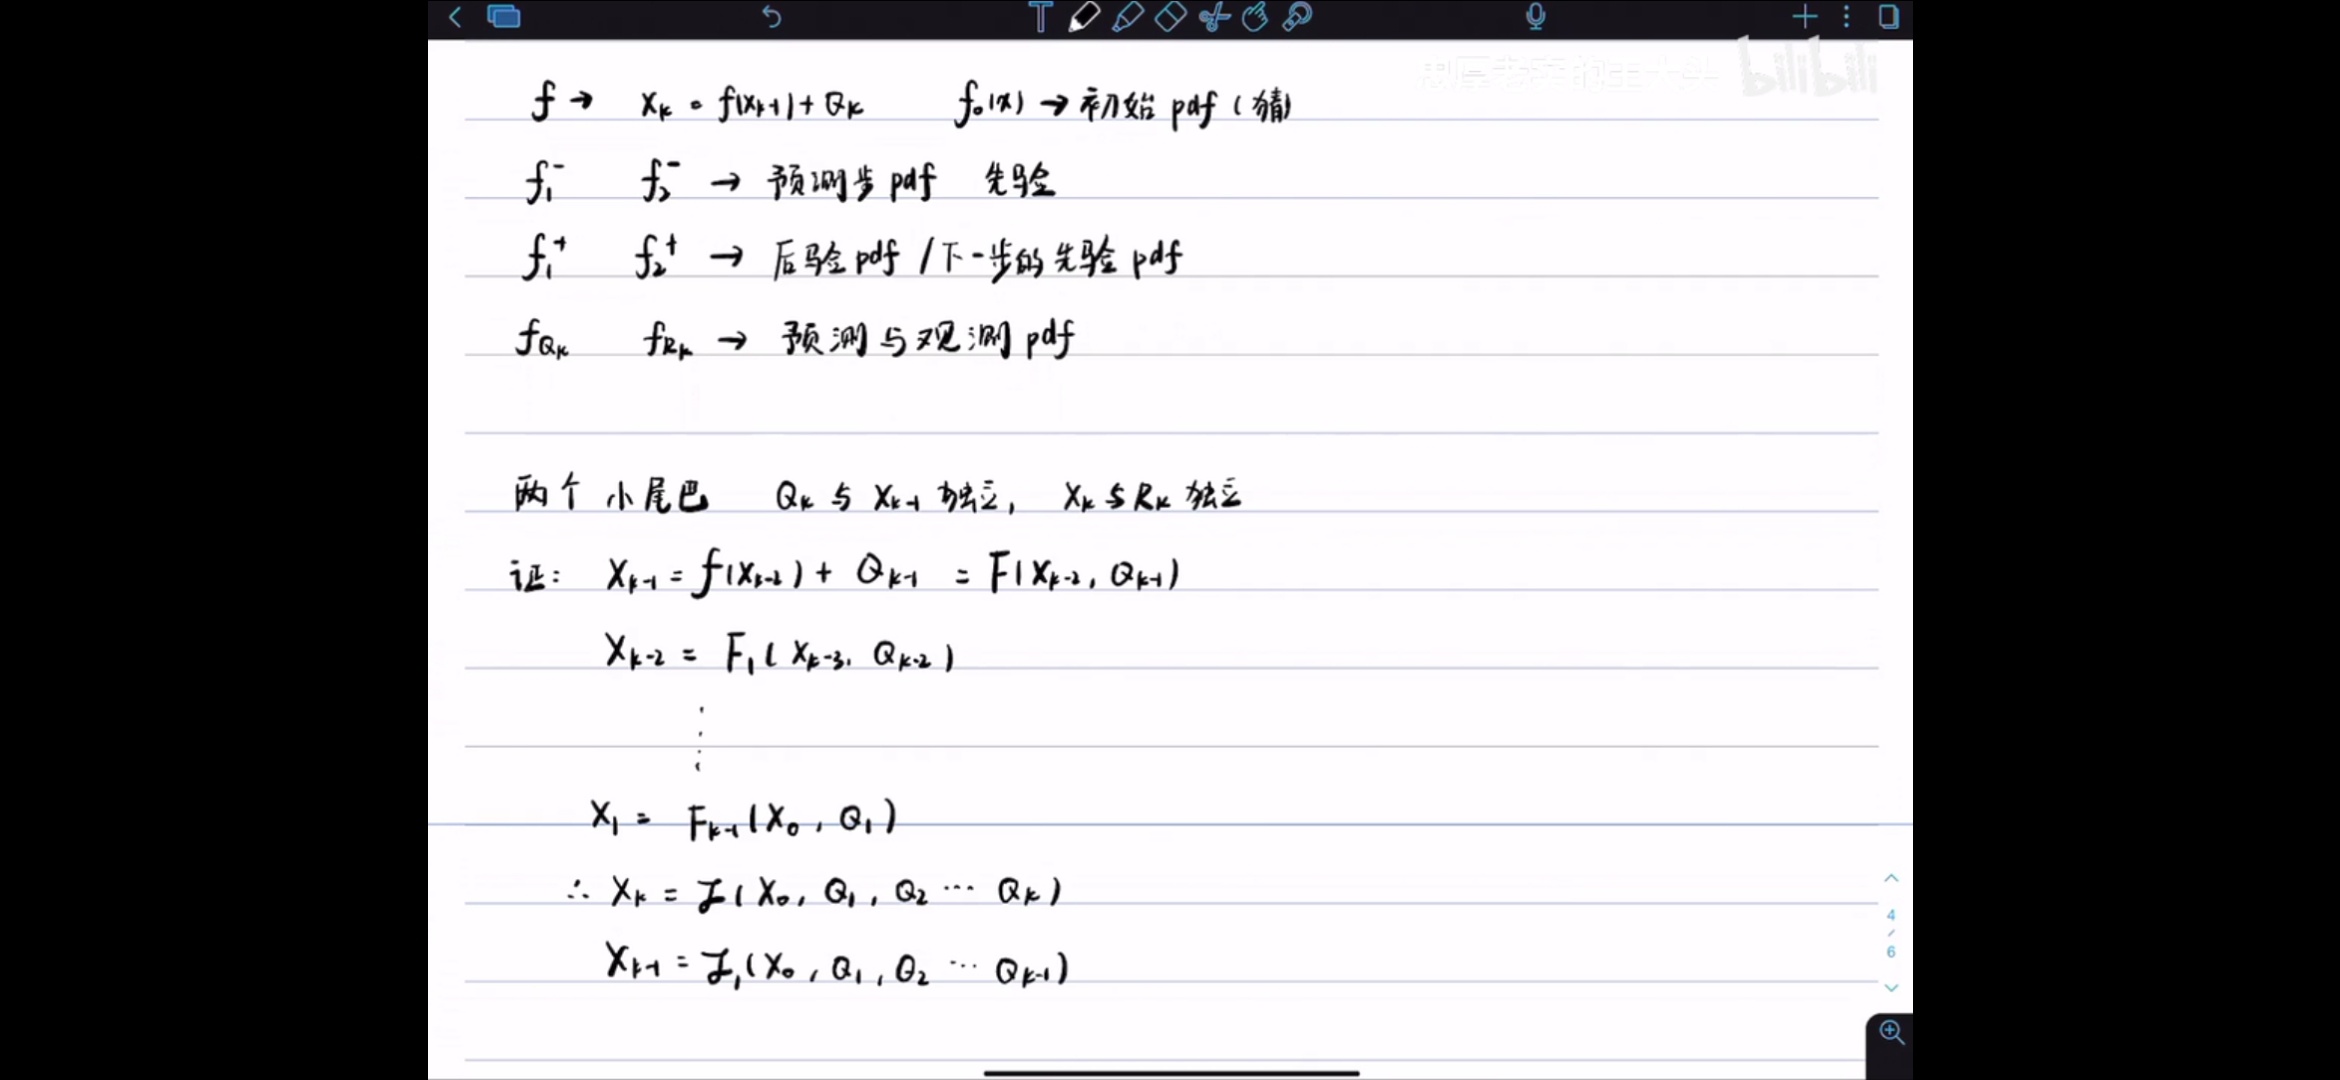 bilibili
f → X_k = f(X_{k-1}) + Q_k f_0(x) → 初始 pdf (猜)
f_1^- f_2^- → 预测步 pdf 先验
f_1^+ f_2^+ → 后验 pdf / 下一步的先验 pdf
f_{Q_k} f_{R_k} → 预测与观测 pdf
两个小尾巴 Q_k 与 X_{k-1} 独立, X_k 与 R_k 独立
证: X_{k-1} = f(X_{k-2}) + Q_{k-1} = F(X_{k-2}, Q_{k-1})
X_{k-2} = F_1(X_{k-3}, Q_{k-2})
⋮
X_1 = F_{k-1}(X_0, Q_1)
∴ X_k = ℱ(X_0, Q_1, Q_2 ⋯ Q_k)
X_{k-1} = ℱ_1(X_0, Q_1, Q_2 ⋯ Q_{k-1})
4
/
6